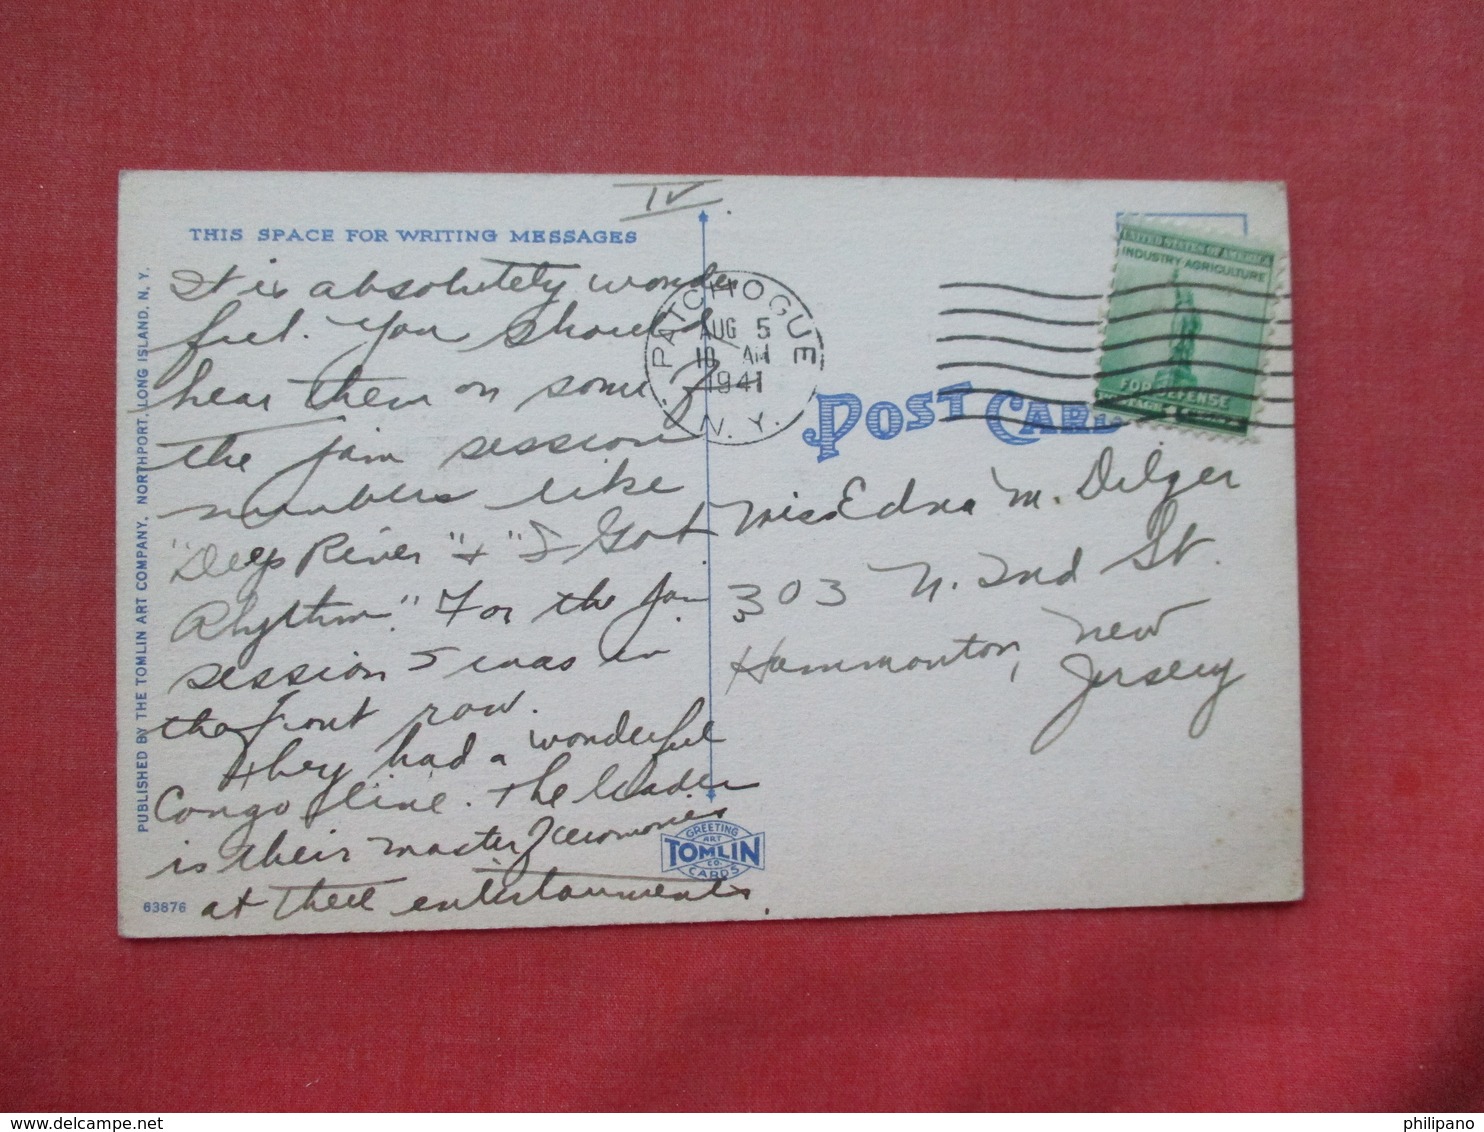 IV.
THIS SPACE FOR WRITING MESSAGES
It is absolutely wonder
ful. You should
hear them on some of
the jam session
numbers like
"Deep River" + "I Got
Rhythm." For the jam
session I was in
the front row.
They had a wonderful
Congo line. The leader
is their master of ceremonies
at these entertainments.
PUBLISHED BY THE TOMLIN ART COMPANY, NORTHPORT, LONG ISLAND, N. Y.
63876
PATCHOGUE
AUG 5
10 AM
1941
N. Y.
UNITED STATES OF AMERICA
INDUSTRY AGRICULTURE
FOR DEFENSE
POST CARD
Miss Edna M. Dilger
303 N. 2nd St.
Hammonton, New
Jersey
GREETING
ART
TOMLIN
CO.
CARDS
delcampe.net
philipano